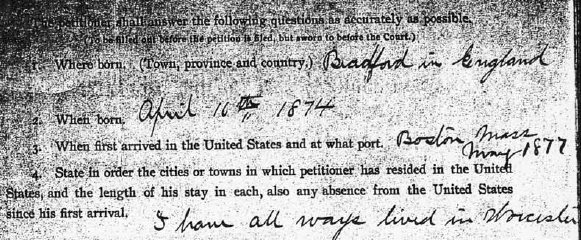 The petitioner shall answer the following questions as accurately as possible.
(To be filled out before the petition is filed, but sworn to before the Court.)
1. Where born. (Town, province and country.) Bradford in England
2. When born. April 16th 1874
3. When first arrived in the United States and at what port. Boston Mass
May 1877
4. State in order the cities or towns in which petitioner has resided in the United
States, and the length of his stay in each, also any absence from the United States
since his first arrival. I have all ways lived in Worcester